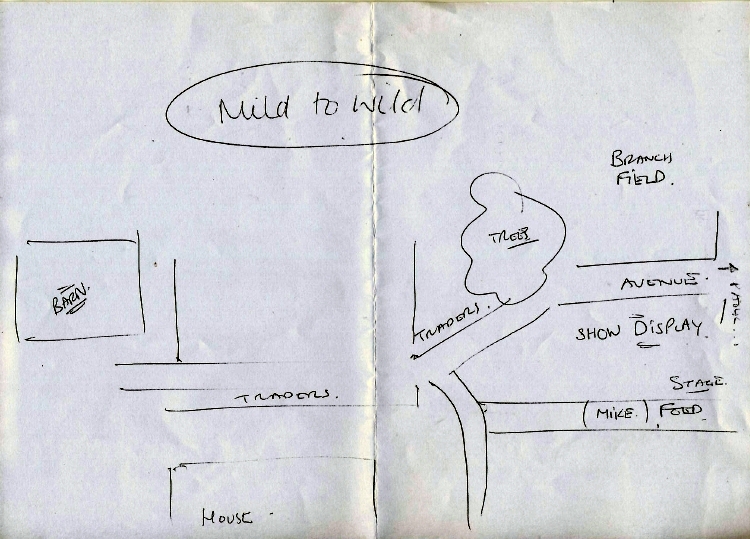 Mild to Wild
BRANCH
FIELD.
TREES
BARN.
AVENUE.
TRADERS.
SHOW DISPLAY.
STAGE.
TRADERS.
(MIKE.) FOOD.
HOUSE.